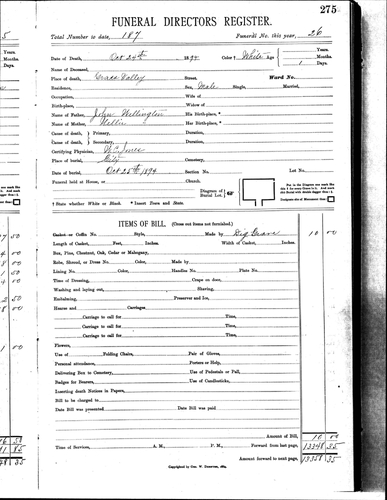 275
FUNERAL DIRECTORS REGISTER.
Total Number to date, 187 Funeral No. this year, 26
Date of Death, Oct 24th 1894 Color † White Age Years. Months. 1 Days.
Name of Deceased,
Place of death, Grass Valley Street. Ward No.
Residence, Sex, Male Single, Married,
Occupation, Wife of
Birth-place, Widow of
Name of Father, John Willington His Birth-place, *
Name of Mother, Nellie Her Birth-place, *
Cause of death } Primary, Duration,
Cause of death } Secondary, Duration,
Certifying Physician, W.C. Jones
Place of burial, City Cemetery,
Date of burial, Oct 25th 1894 Section No. Lot No.
Funeral held at House, or Church.
Diagram of Burial Lot.
† State whether White or Black. * Insert Town and State.
ITEMS OF BILL. (Draw out items not furnished.)
Casket or Coffin No. Style, Made by Dig Grave 10 00
Length of Casket, Feet, Inches. Width of Casket, Inches.
Box, Pine, Chestnut, Oak, Cedar or Mahogany,
Robe, Shroud, or Dress No. Color, Made by
Lining No. Color, Handles No. Plate No.
Time of Dressing, Crape on door,
Washing and laying out, Shaving,
Embalming, Preserver and Ice,
Hearse and Carriages
Carriage to call for Time,
Carriage to call for Time,
Carriage to call for Time,
Carriage to call for Time,
Flowers,
Use of Folding Chairs, Pair of Gloves,
Personal attendance, Porters or Help,
Delivering Box to Cemetery, Use of Pedestals or Pall,
Badges for Bearers, Use of Candlesticks,
Inserting death Notices in Papers,
Bill to be charged to
Date Bill was presented Date Bill was paid
Amount of Bill, 10 00
Time of Services, A. M., P. M., Forward from last page, 13348 35
Amount forward to next page, 13358 35